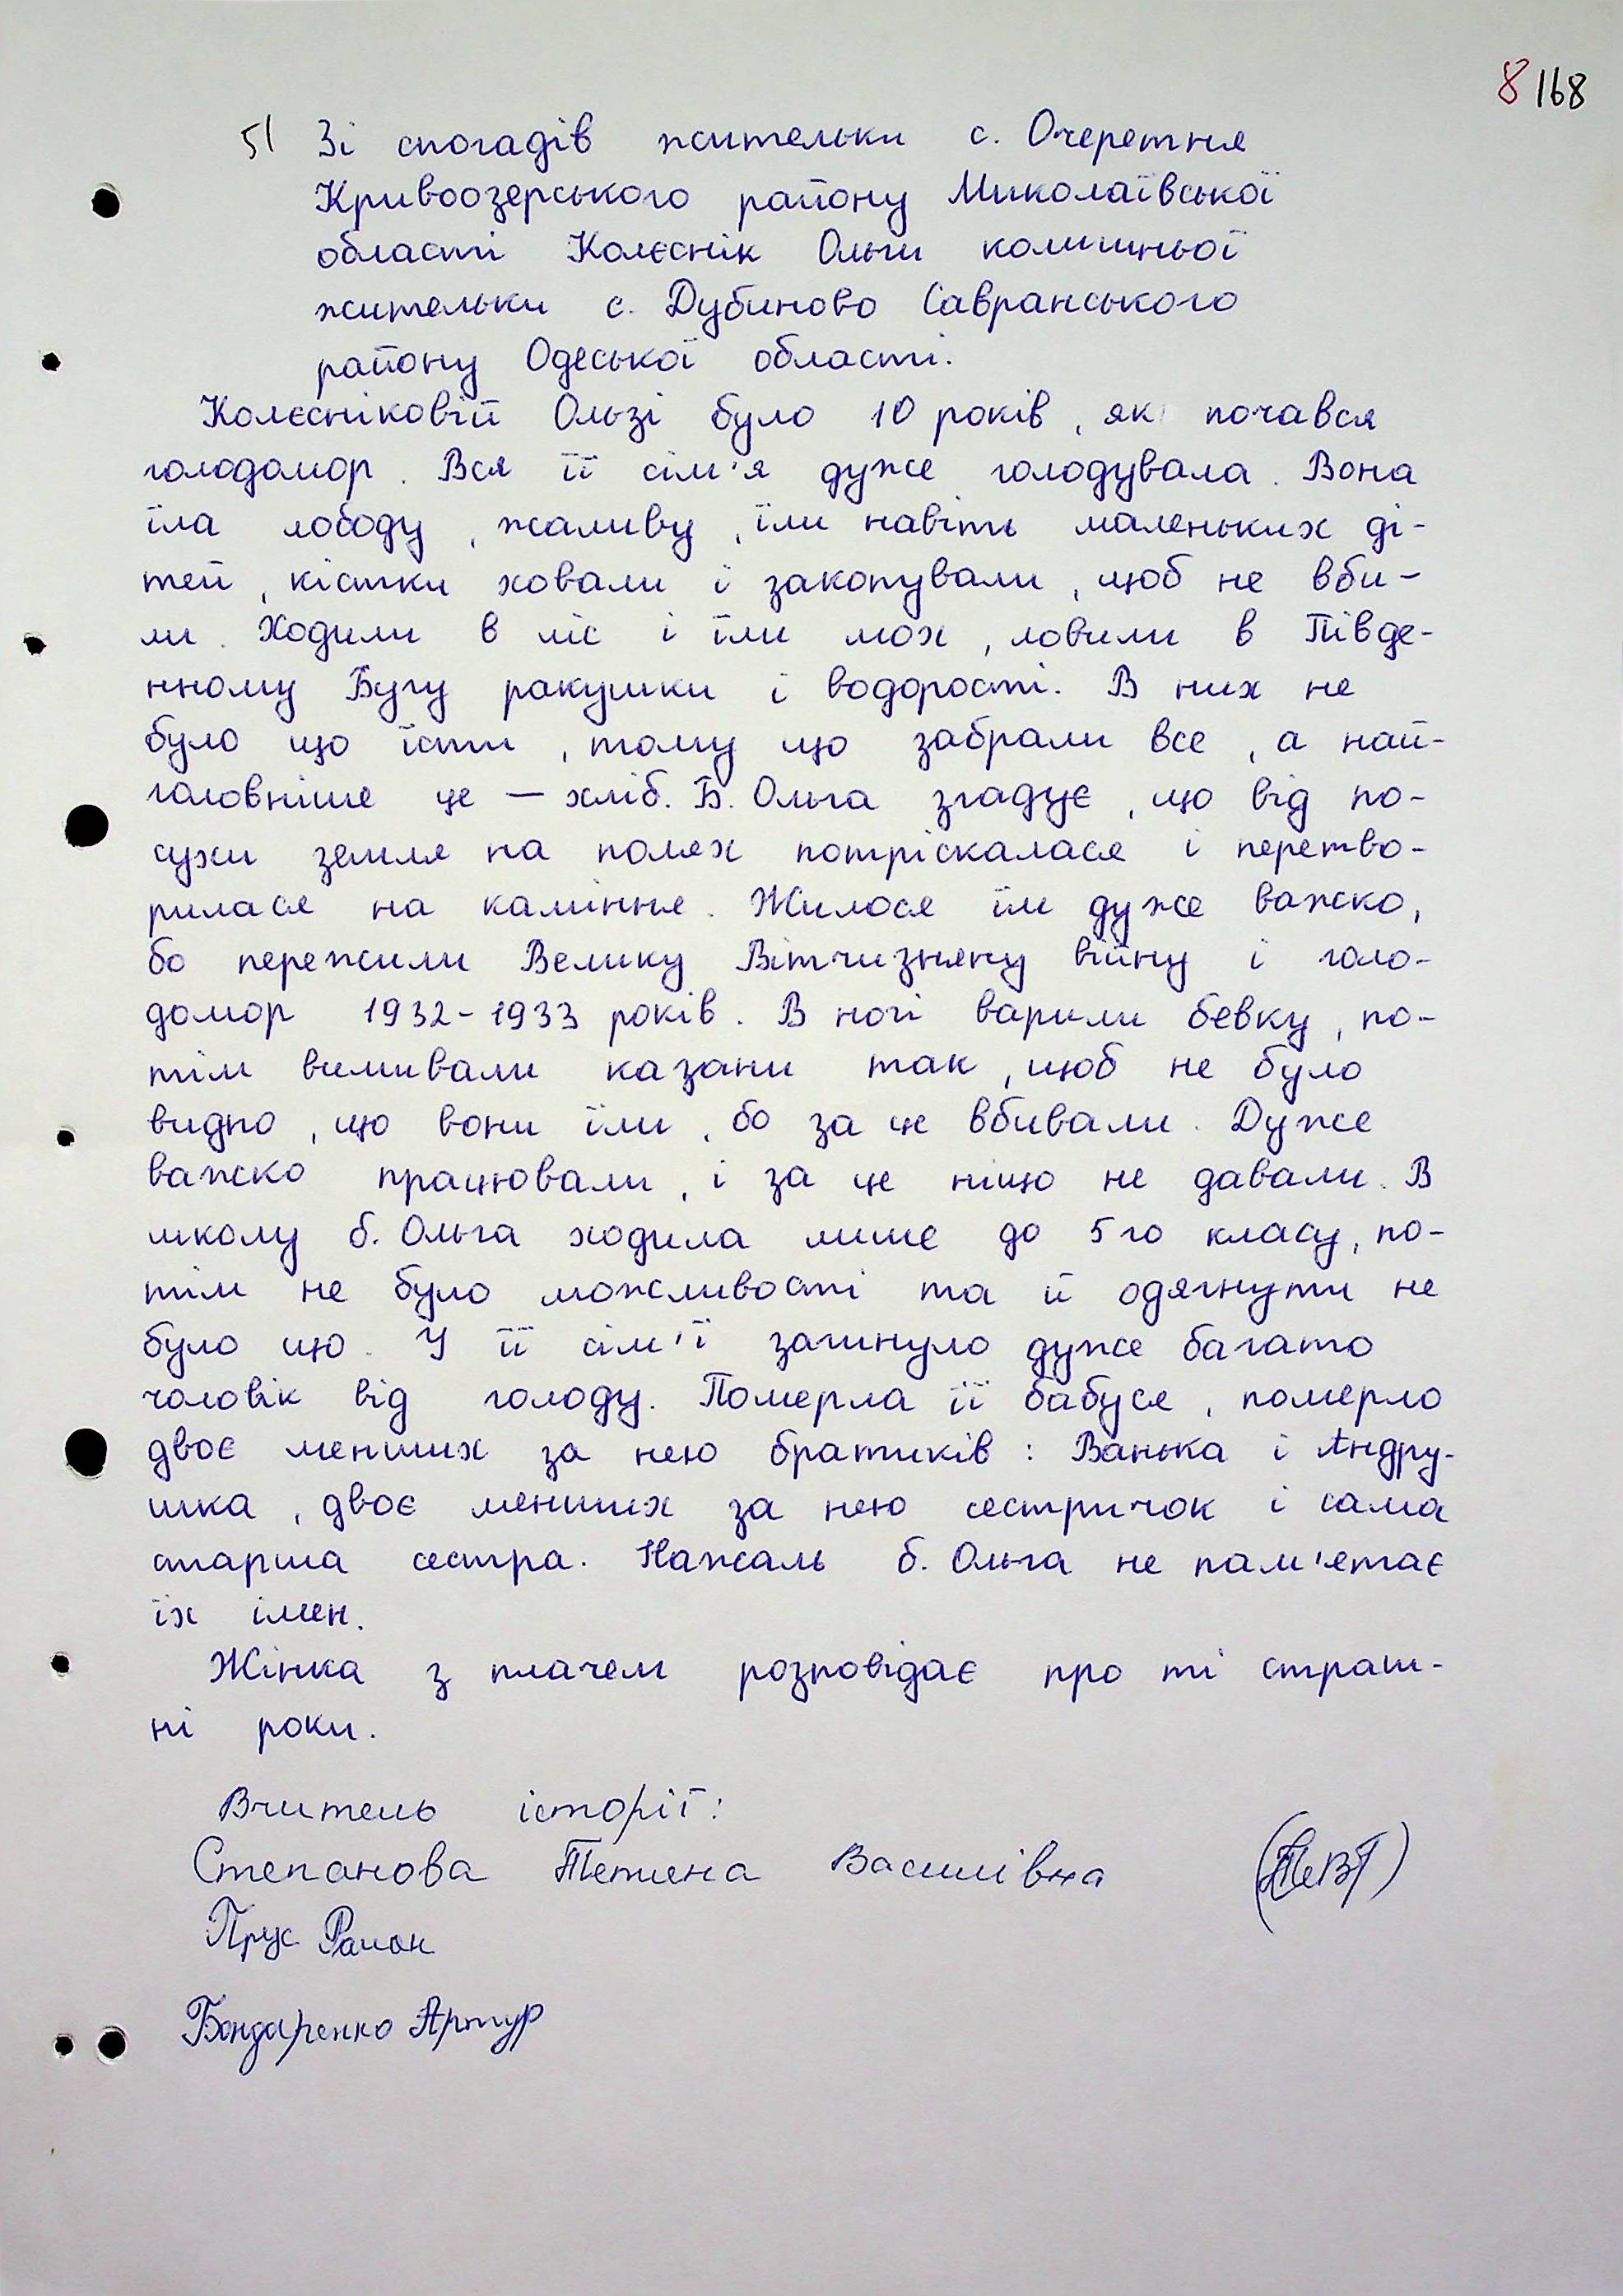 8 168
51 Зі спогадів жительки с. Очеретня
Кривоозерського району Миколаївської
області Колєснік Ольги колишньої
жительки с. Дубиново Савранського
району Одеської області.
Колєсніковій Ользі було 10 років, як почався
голодомор. Вся її сім'я дуже голодувала. Вона
їла лободу, жаливу, їли навіть маленьких ді-
тей, кістки ховали і закопували, щоб не вби-
ли. Ходили в ліс і їли мох, ловили в Півде-
нному Бугу ракушки і водорості. В них не
було що їсти, тому що забрали все, а най-
головніше це — хліб. Б. Ольга згадує, що від по-
сухи земля на полях потріскалася і перетво-
рилася на каміння. Жилося їм дуже важко,
бо пережили Велику Вітчизняну війну і голо-
домор 1932-1933 років. В ночі варили бевку, по-
тім вимивали казани так, щоб не було
видно, що вони їли, бо за це вбивали. Дуже
важко працювали, і за це нішо не давали. В
школу б. Ольга ходила лише до 5го класу, по-
тім не було можливості та й одягнути не
було що. У її сім'ї загинуло дуже багато
чоловік від голоду. Померла її бабуся, померло
двоє менших за нею братиків: Ванька і Андру-
шка, двоє менших за нею сестричок і сама
старша сестра. Нажаль б. Ольга не пам'ятає
їх імен.
Жінка з плачем розповідає про ті страш-
ні роки.
Вчитель історії:
Степанова Тетяна Василівна
Прус Раман
Бондаренко Артур